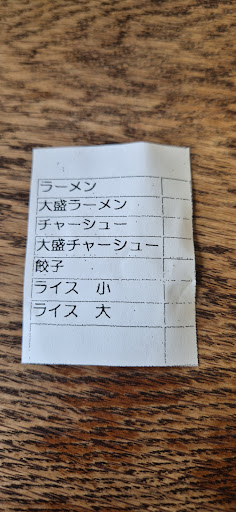 ラーメン
大盛ラーメン
チャーシュー
大盛チャーシュー
餃子
ライス　小
ライス　大